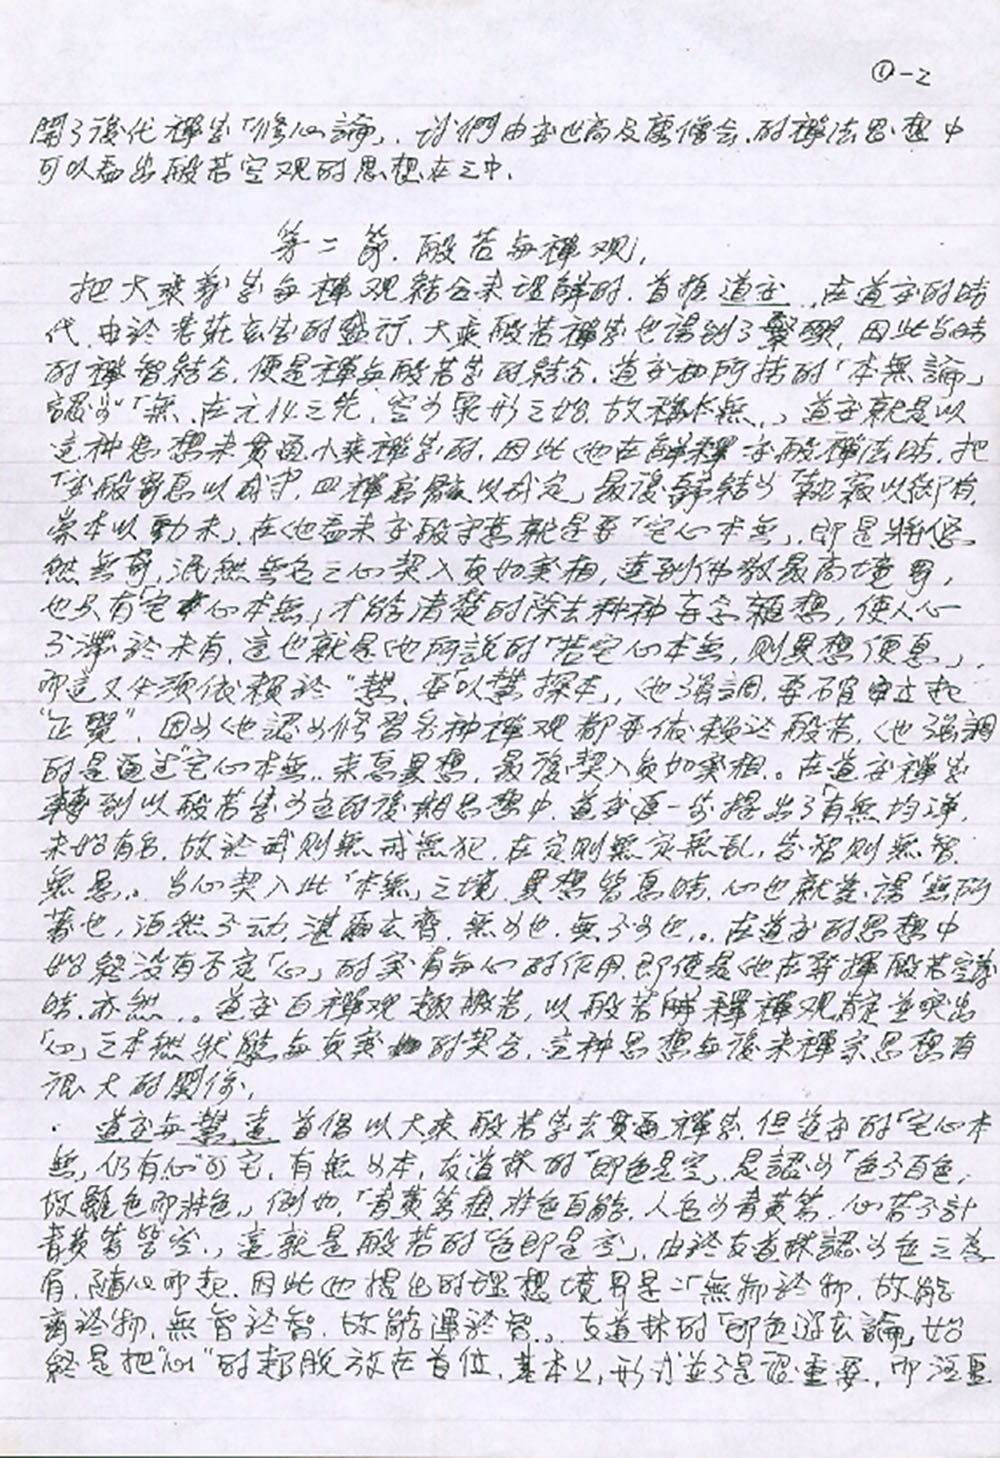 ①-2
開了後代禪學「修心論」，我們由安世高及康僧會的禪法思想中
可以看出般若空观的思想在之中.
第二節. 般若與禪观,
把大乘義學與禪观結合來理解的. 首推道安. 在道安的時
代. 由於老莊玄学的盛行. 大乘般若禪學也得到了發展, 因此当時
的禪智結合. 便是禪與般若学的結合. 道安和所持的「本無論」
認为「無. 在元化之先. 空为眾形之始. 故稱本無.」道安就是以
這种思想來貫通小乘禪學的. 因此他在解釋安般禪法時. 把
「安般寄息以成守. 四禪寓骸以成定」最後歸結为「執寂以御有,
崇本以動末」在他看來安般守意就是要「宅心本無」即是將
然無寄, 泯然無名之心契入真如实相, 達到佛教最高境界,
也只有「宅心本無」才能清楚的除去种种存念雜想, 使人心
不滯於末有. 這也就是他所說的「若宅心本無, 則異想便息」.
而這又必須依賴於"慧. 要「以慧探本」他強調. 要不確立起
"正覺". 因为他認为修習各种禪观都要依賴於般若. 他強調
的是通过"宅心本無". 來息異想. 最後契入真如实相. 在道安禪学
轉到以般若学为主的後期思想中. 道安進一步提出了「有無均淨,
未始有名. 故於戒則無戒無犯. 在定則無定無乱, 若智則無智
無愚」. 当心契入此「本無」之境. 異想皆息時. 心也就 「無所
著也, 泊然不动. 湛爾玄齊. 無为也. 無不为也」. 在道安的思想中
始終没有否定「心」的实有與心的作用. 即使是他在發揮般若空義
時. 亦然. 道安自禪观趣般若, 以般若解釋禪观 並突出
「心」之本然狀態與真实的契合. 這种思想與後來禪家思想有
很大的關係.
道安與慧遠 首倡以大乘般若学去貫通禪学. 但道安的「宅心本
無」仍有"心"可宅. 有無为本, 支道林的「即色是空」是認为「色不自色,
故雖色即非色」例如.「青黃等相. 非色自能. 人色为青黃等. 心若不計
青黃等皆空」. 這就是般若的「色即是空」. 由於支道林認为色之为
有. 随心而起. 因此他提出的理想境界是:「無物於物. 故能
齊於物. 無智於智. 故能運於智」. 支道林的「即色遊玄論」始
終是把"心"的超脫放在首位. 基本上, 形式並不是很重要, 而注重